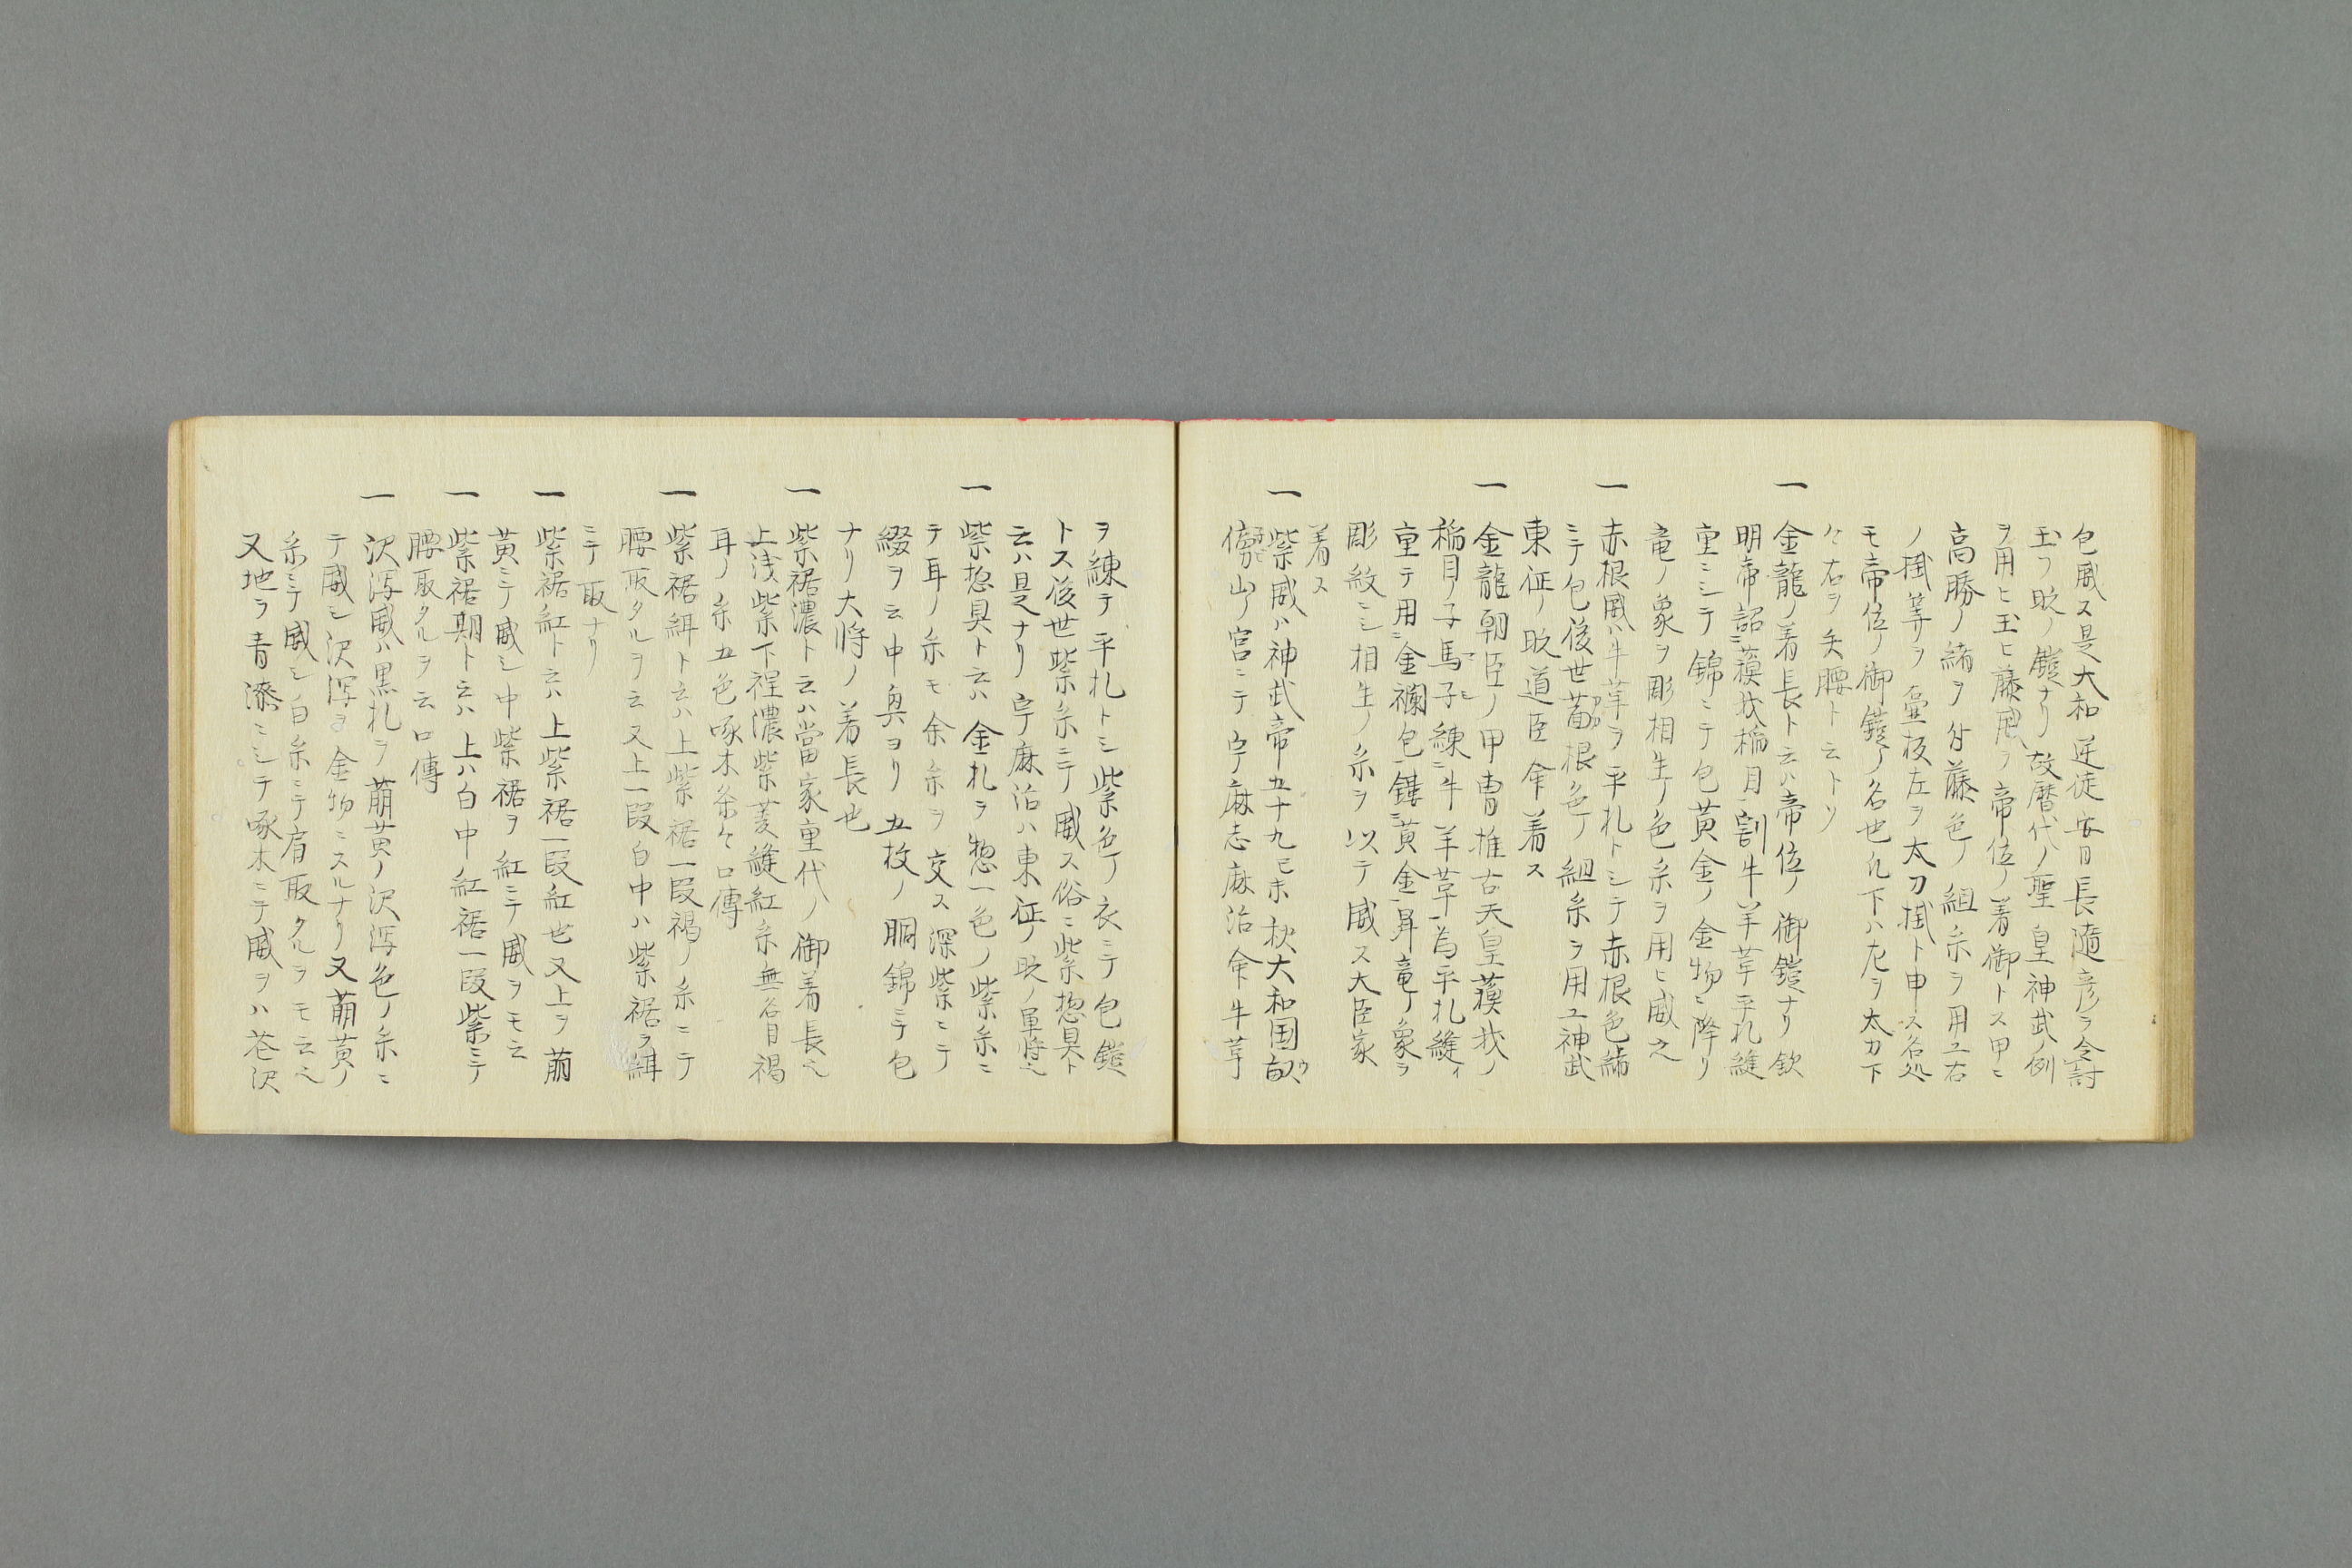 包威ス是大和逆徒安日長隨彦ヲ令討
玉フ時ノ鎧ナリ故暦代ノ聖皇神武ノ例
ヲ用ヒ玉ヒ藤威ヲ帝位ノ着御トス甲ニ
高勝ノ緒ヲ付藤色ノ組糸ヲ用ユ右
ノ掛等ヲ壷板左ヲ太刀掛ト申ス名処
モ帝位ノ御鎧ノ名也凡下ハ左ヲ太刀下
々右ヲ矢腰ト云トソ
一 金龍ノ着長ト云ハ帝位ノ御鎧ナリ欽
明帝詔ニ蘓我稲目ニ割牛羊革平札縫
重ニシテ錦ニテ包黄金ノ金物ニ降リ
竜ノ象ヲ彫相生ノ色糸ヲ用ヒ威之
一 赤根威ハ牛革ヲ平札トシテ赤根色綿
ニテ包後世茜根色ノ組糸ヲ用ユ神武
東征ノ時道臣命着ス
一 金龍朝臣ノ甲冑推古天皇蘓我ノ
稲目ノ子馬子練ニ牛羊革為平札縫イ
重テ用ニ金襴包ニ鏤黄金ニ昇竜ノ象ヲ
彫紋ニシ相生ノ糸ヲ以テ威ス大臣家
着ス
一 紫威ハ神武帝五十九巳未秋大和国畝
傍山ノ宮ニテ宇麻志麻治命牛革
ヲ練テ平札トシ紫色ノ衣ニテ包鎧
トス後世紫糸ニテ威ス俗ニ紫惣具ト
云ハ是ナリ宇麻治ハ東征ノ時ノ軍将之
一 紫惣具ト云ハ金札ヲ惣一色ノ紫糸ニ
テ耳ノ糸モ余糸ヲ交ス深紫ニテ
綴ヲ云中奥ヨリ五枚ノ胴錦ニテ包
ナリ大将ノ着長也
一 紫裾濃ト云ハ當家重代ノ御着長之
上浅紫下裎濃紫菱縫紅糸無名目褐
耳ノ糸五色啄木条々口傳
一 紫裾緝ト云ハ上紫裾一段褐ノ糸ニテ
腰取タルヲ云又上一段白中ハ紫裾ヲ緝
ニテ取ナリ
一 紫裾紅ト云ハ上紫裾一段紅也又上ヲ萠
黄ニテ威シ中紫裾ヲ紅ニテ威ヲモ云
一 紫裾期ト云ハ上ハ白中紅裾一段紫ニテ
腰取タルヲ云口傳
一 沢瀉威ハ黒札ヲ萠黄ノ沢瀉色ノ糸ニ
テ威シ沢瀉ヲ金物ニスルナリ又萠黄ノ
糸ニテ威シ白糸ニテ肩取タルヲモ云之
又地ヲ青漆ニシテ啄木ニテ威ヲハ苍沢